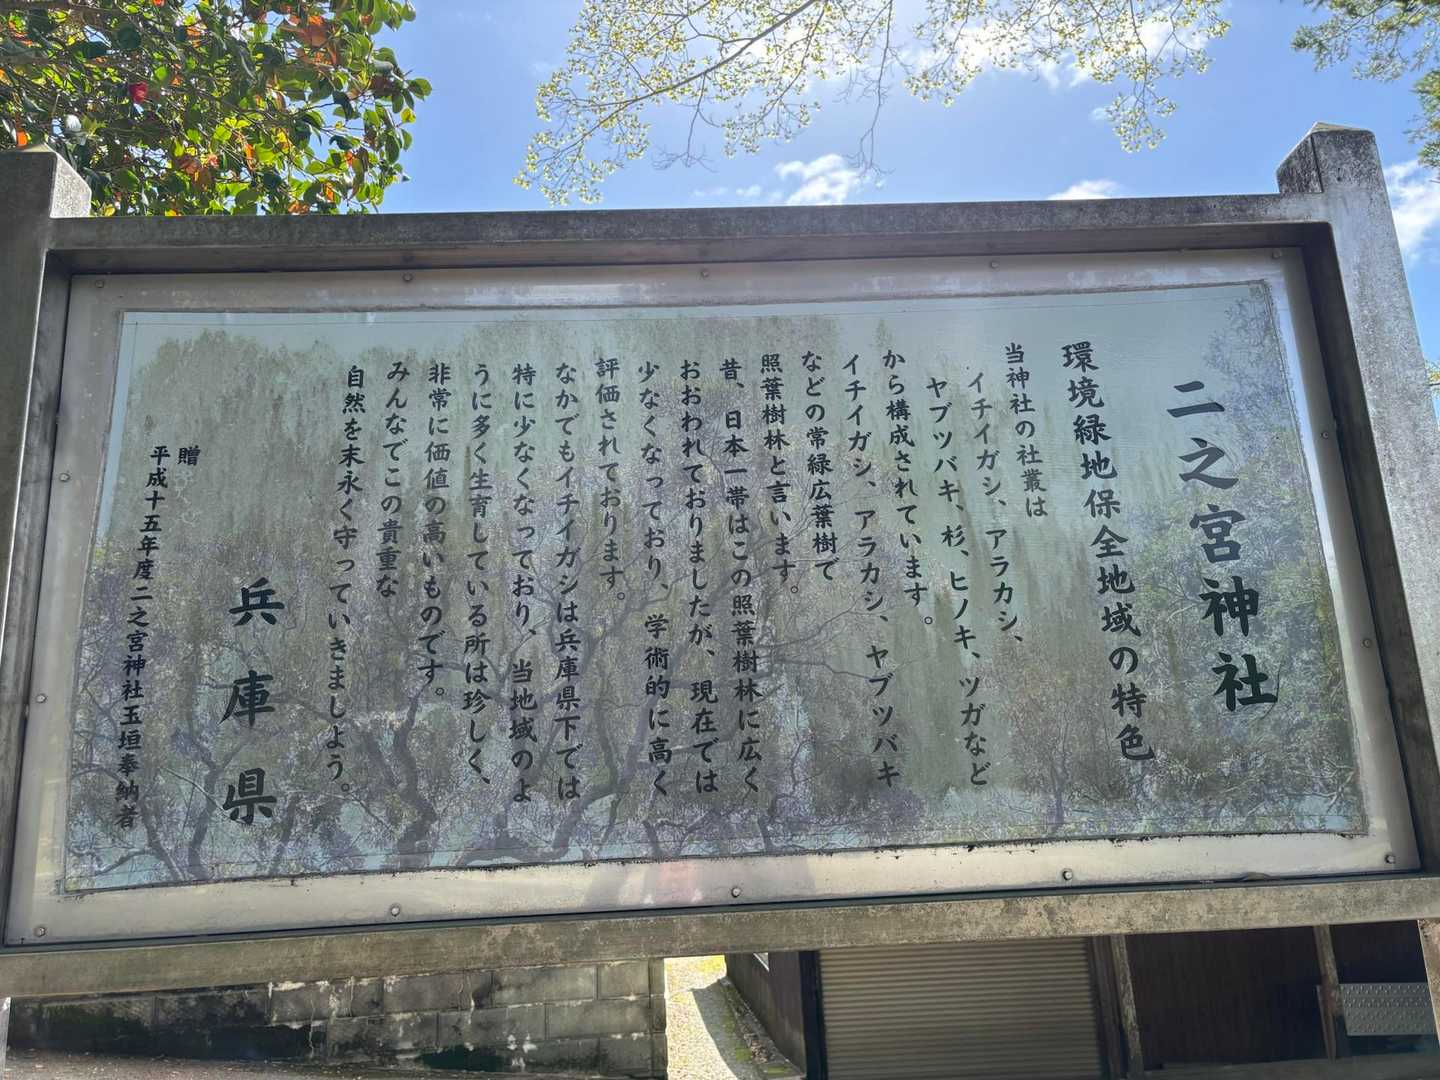 二之宮神社
環境緑地保全地域の特色
当神社の社叢は
イチイガシ、アラカシ、
ヤブツバキ、杉、ヒノキ、ツガなど
から構成されています。
イチイガシ、アラカシ、ヤブツバキ
などの常緑広葉樹で
照葉樹林と言います。
昔、日本一帯はこの照葉樹林に広く
おおわれておりましたが、現在では
少なくなっており、学術的に高く
評価されております。
なかでもイチイガシは兵庫県下では
特に少なくなっており、当地域のよ
うに多く生育している所は珍しく、
非常に価値の高いものです。
みんなでこの貴重な
自然を末永く守っていきましょう。
兵庫県
贈
平成十五年度二之宮神社玉垣奉納者